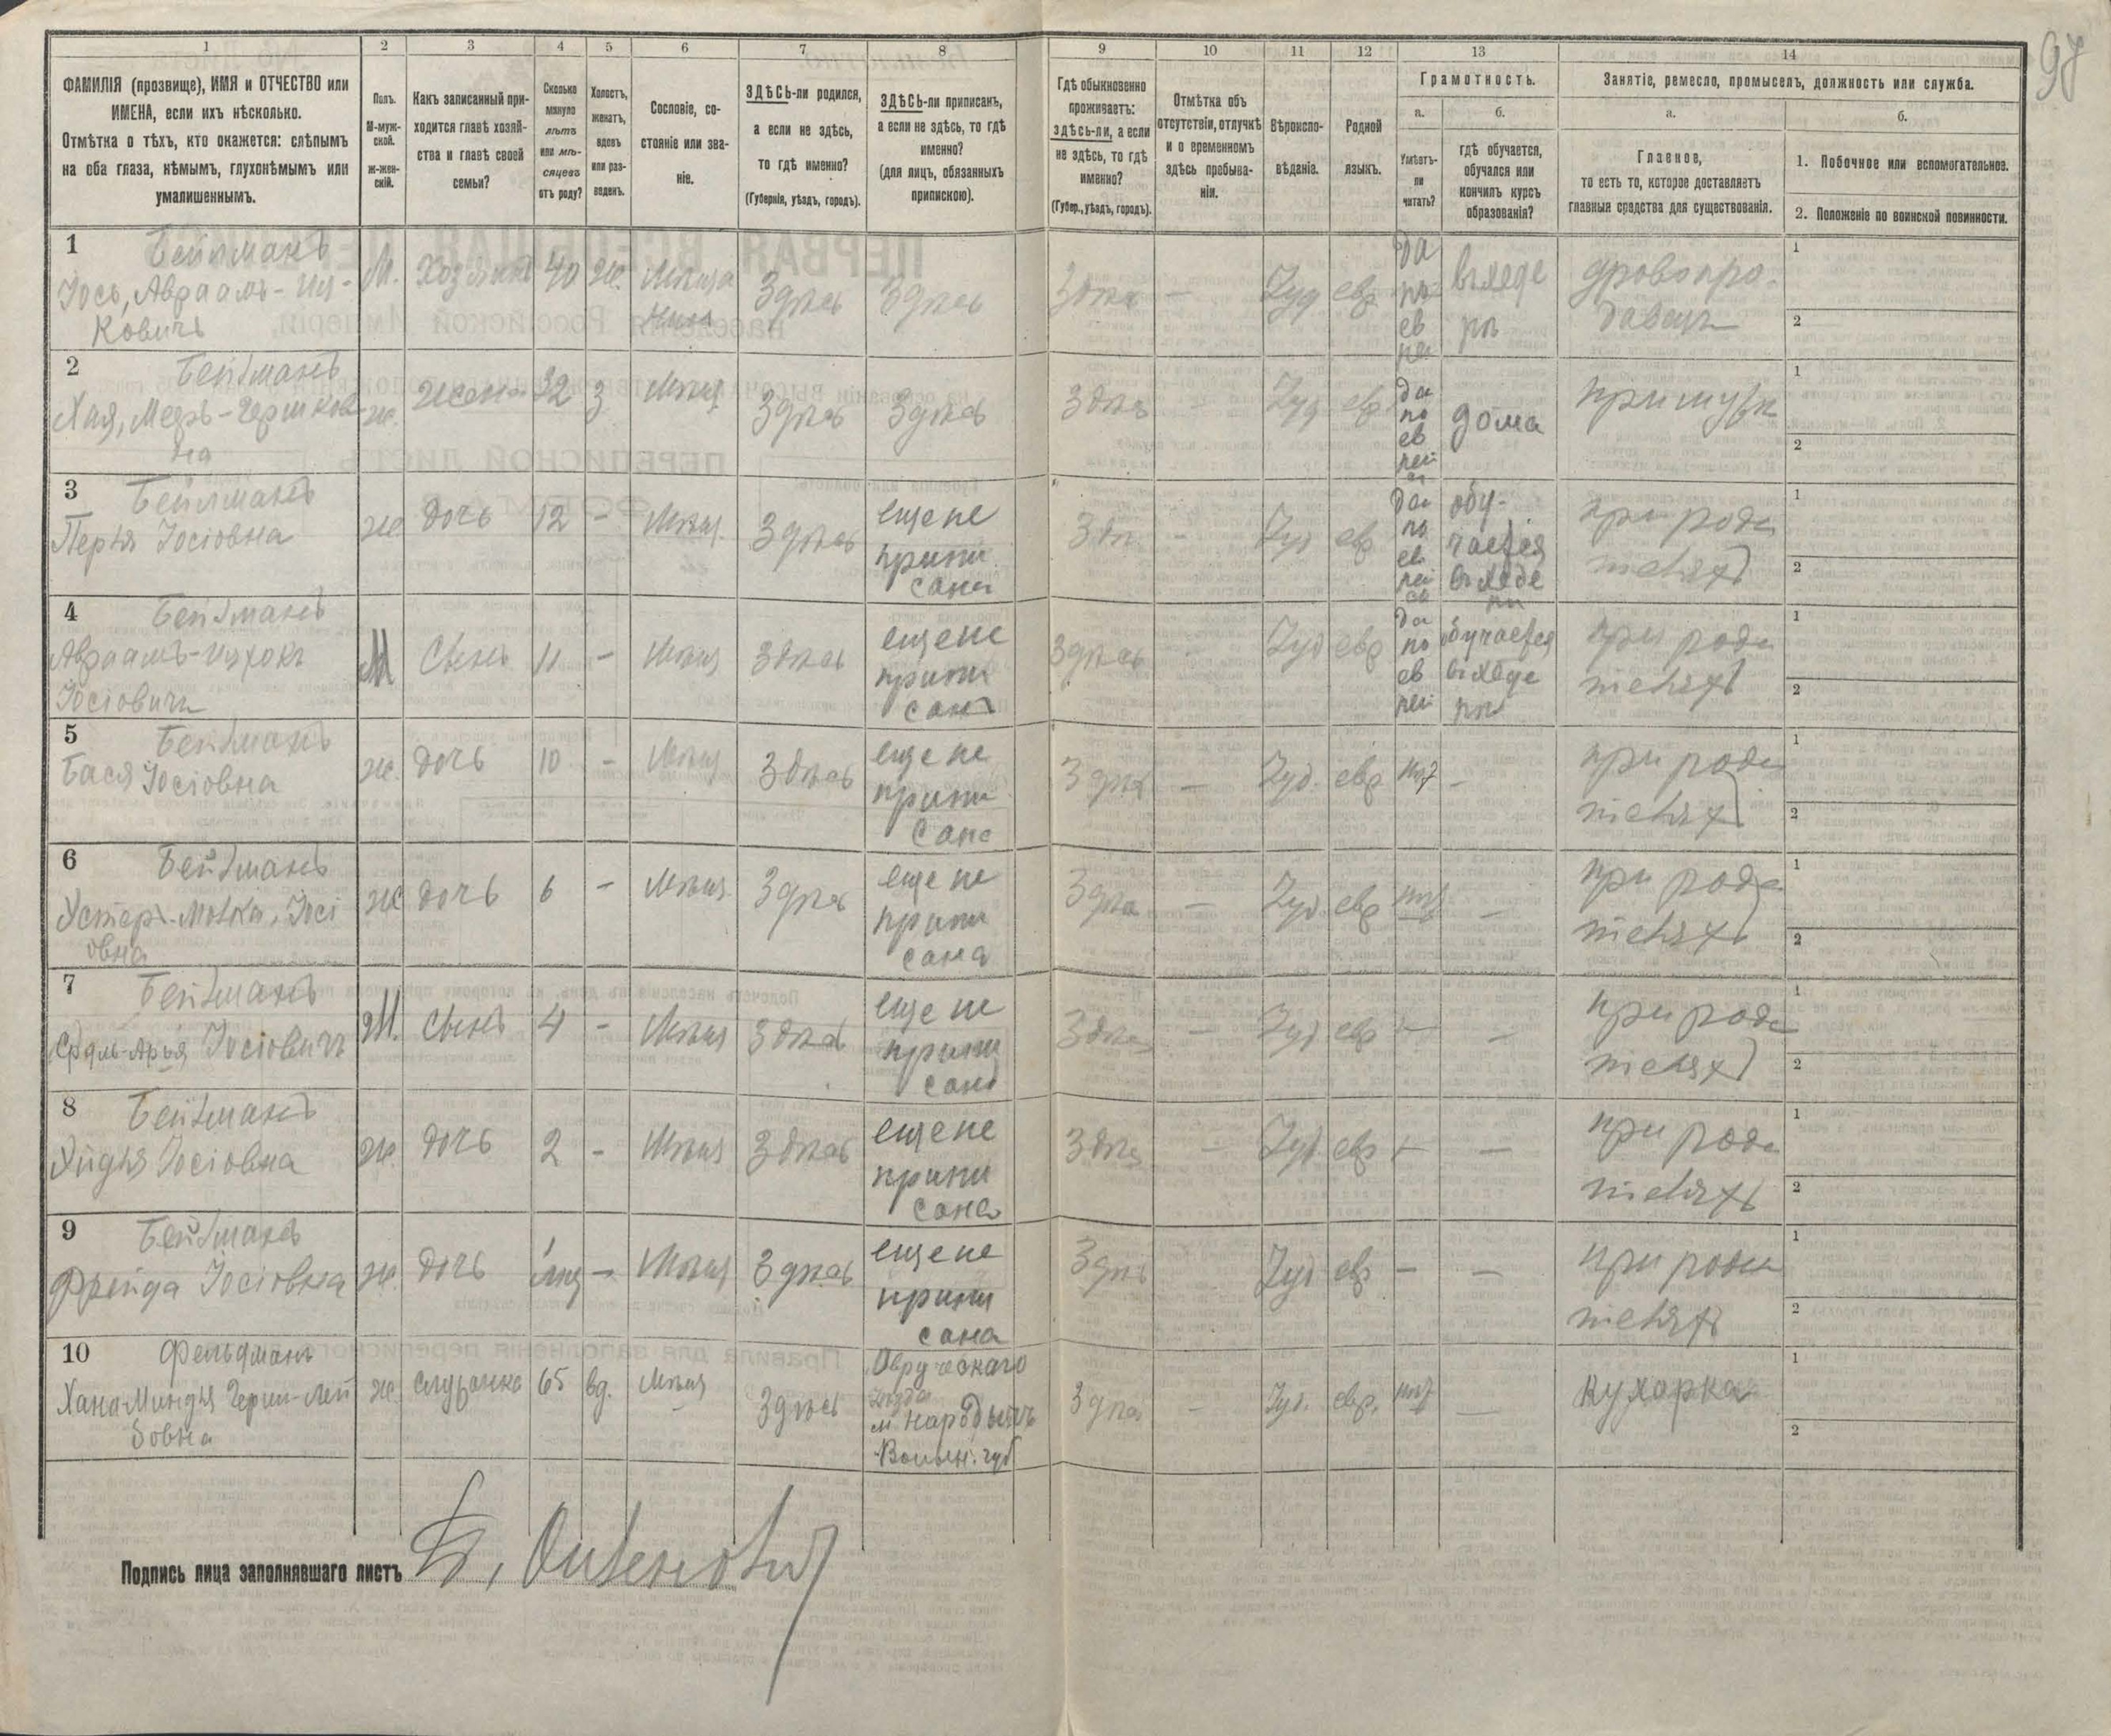 97
1
2
3
4
5
6
7
8
9
10
11
12
13
14
ФАМИЛІЯ (прозвище), ИМЯ и ОТЧЕСТВО или
ИМЕНА, если ихъ нѣсколько.
Отмѣтка о тѣхъ, кто окажется: слѣпымъ
на оба глаза, нѣмымъ, глухонѣмымъ или
умалишеннымъ.
Полъ.
М-муж-
ской.
ж-жен-
скій.
Какъ записанный при-
ходится главѣ хозяй-
ства и главѣ своей
семьи?
Сколько
минуло
лѣтъ
или мѣ-
сяцевъ
отъ роду?
Холостъ,
женатъ,
вдовъ
или раз-
веденъ.
Сословіе, со-
стояніе или зва-
ніе.
ЗДѢСЬ-ли родился,
а если не здѣсь,
то гдѣ именно?
(Губернія, уѣздъ, городъ).
ЗДѢСЬ-ли приписанъ,
а если не здѣсь, то гдѣ
именно?
(для лицъ, обязанныхъ
припискою).
Гдѣ обыкновенно
проживаетъ:
здѣсь-ли, а если
не здѣсь, то гдѣ
именно?
(Губер., уѣздъ, городъ).
Отмѣтка объ
отсутствіи, отлучкѣ
и о временномъ
здѣсь пребыва-
ніи.
Вѣроиспо-
вѣданіе.
Родной
языкъ.
Грамотность.
а.
Умѣетъ-
ли
читать?
б.
гдѣ обучается,
обучался или
кончилъ курсъ
образованія?
Занятіе, ремесло, промыселъ, должность или служба.
а.
Главное,
то есть то, которое доставляетъ
главныя средства для существованія.
б.
1. Побочное или вспомогательное.
2. Положеніе по воинской повинности.
1 Бейлманъ
Іось, Авраамъ-Иц-
ковичъ
М. Хозяинъ 40 Ж. Мѣща
нинъ
Здѣсь Здѣсь Здѣсь — Іуд евр
да
по
ев
рей
въ хеде
рѣ
дровопро-
давецъ
1
2
2 Бейлманъ
Хая, Меръ-Гершков
на
ж. жена 32 з Мѣщ. Здѣсь Здѣсь Здѣсь — Іуд евр
да
по
ев
рей
дома
при мужѣ
1
2
3 Бейлманъ
Перля Іосіовна
ж. дочь 12 — Мѣщ. Здѣсь
еще не
припи
сана
Здѣ — Іуд евр
да
по
ев
рей
обу-
чается
въ хеде
рѣ
при роди
теляхъ
1
2
4 Бейлманъ
Авраамъ-Ицхокъ
Іосіовичъ
М Сынъ 11 — Мѣщ Здѣсь
еще не
припи
санъ
Здѣсь — Іуд евр
да
по
ев
рей
обучается
въ хеде
рѣ
при роди
теляхъ
1
2
5 Бейлманъ
Бася Іосіовна
ж. дочь 10 — Мѣщ Здѣсь
еще не
припи
сана
Здѣс — Іуд. евр нѣт —
при роди
теляхъ
1
2
6 Бейлманъ
Эстеръ-Молка, Іосі
овна
ж дочь 6 — Мѣщ. Здѣсь
еще не
припи
сана
Здѣс — Іуд евр нѣт —
при роди
теляхъ
1
2
7 Бейлманъ
Іосіовичъ
М. Сынъ 4 — Мѣщ Здѣсь
еще не
припи
санъ
Здѣс — Іуд евр — —
при роди
теляхъ
1
2
8 Бейлманъ
Іосіовна
ж. дочь 2 — Мѣщ Здѣсь
еще не
припи
сана
Здѣс — Іуд евр — —
при роди
теляхъ
1
2
9 Бейлманъ
Фрейда Іосіовна
ж. дочь — Мѣщ Здѣсь
еще не
припи
сана
Здѣс Іуд евр — —
при роди
теляхъ
1
2
10 Фельдманъ
Хана-Миндля Герш-Лей
бовна
ж. служанка 65 вд. Мѣщ Здѣсь
Овручскаго
уѣзда
м Народычъ
Волын. губ
Здѣс — Іуд. евр. нѣт —
кухарка
1
2
Подпись лица заполнявшаго листъ